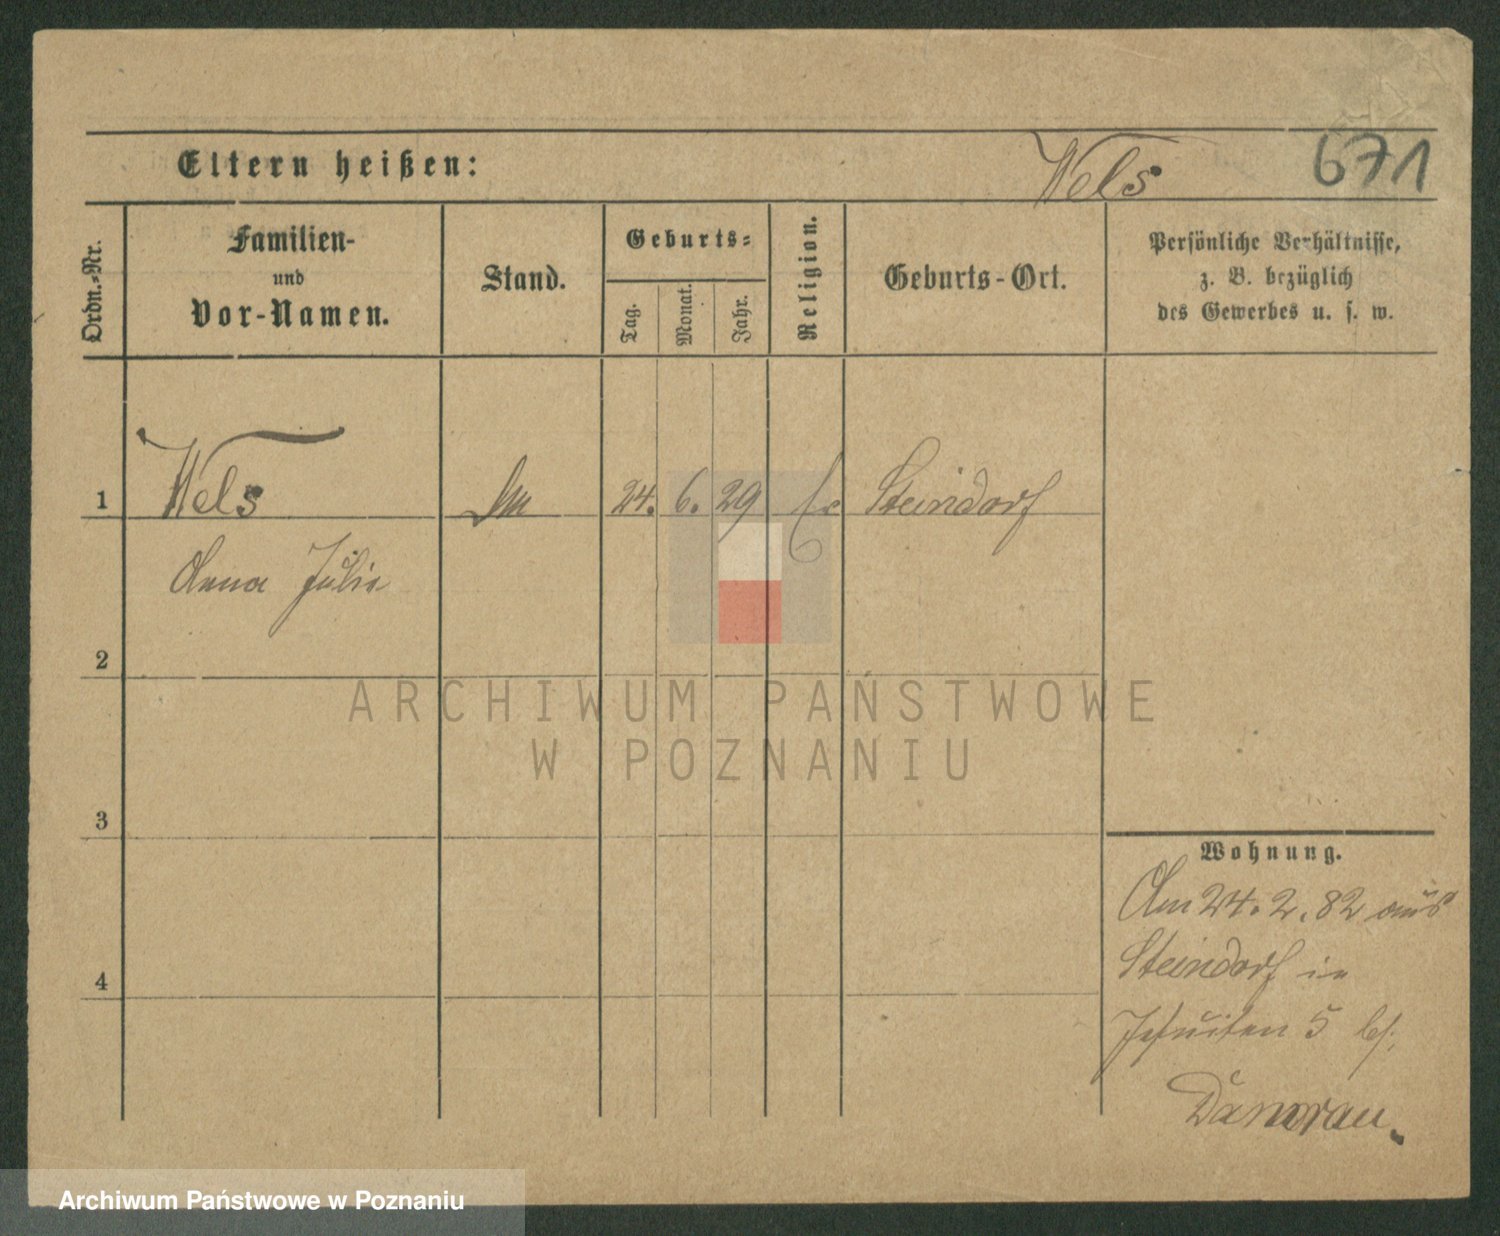 Eltern heißen: Wels 671
Ordn.-Nr.
Familien-
und
Vor-Namen.
Stand.
Geburts-
Tag.
Monat.
Jahr.
Religion.
Geburts-Ort.
Persönliche Verhältnisse,
z. B. bezüglich
des Gewerbes u. s. w.
1 Wels 24. 6. 29 Steindorf
Anna Julie
2
3
4
Wohnung.
Am 24. 2. 82 aus
Steindorf in
Jesuiten 5 bei
ARCHIWUM PAŃSTWOWE
W POZNANIU
Archiwum Państwowe w Poznaniu